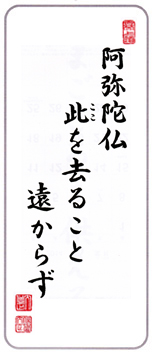 阿弥陀仏
此を去ること
遠からず